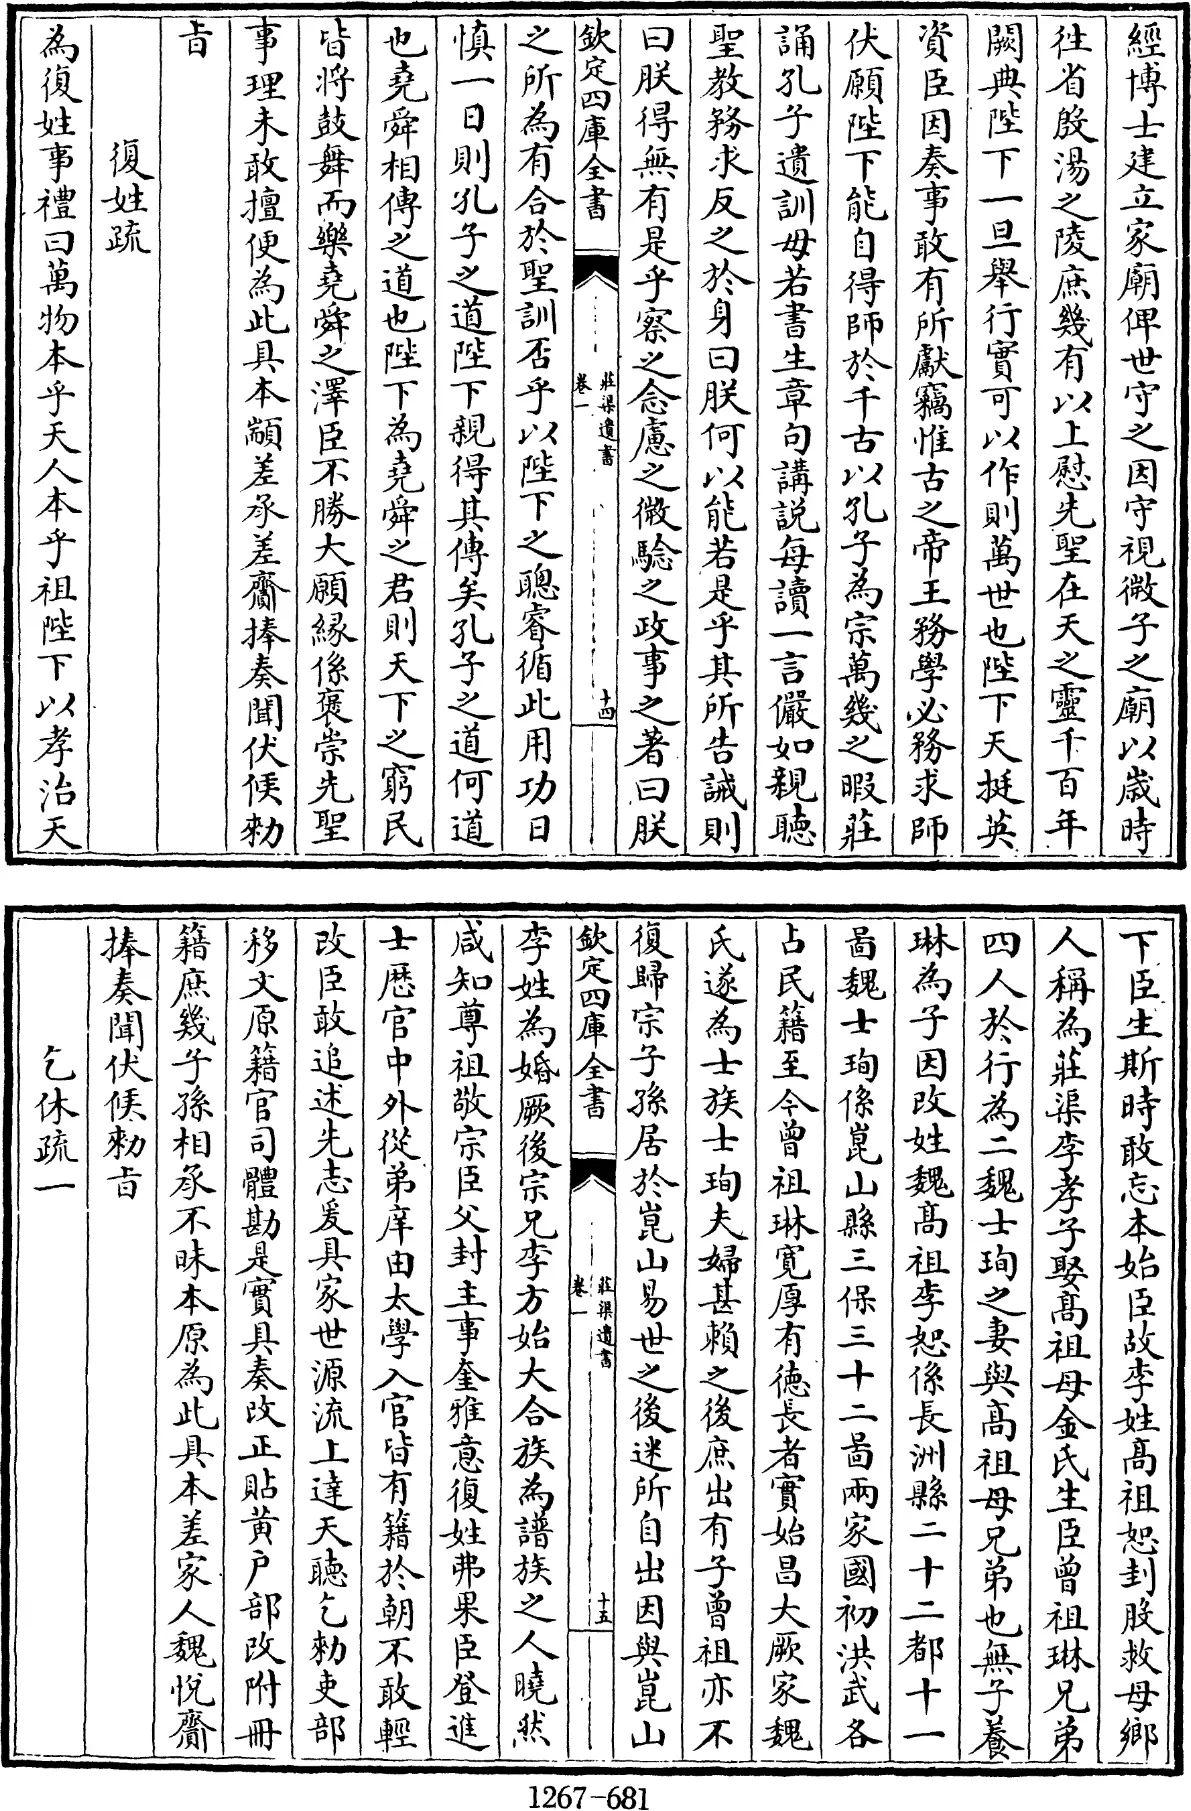 經博士建立家廟俾世守之因守視微子之廟以歲時
往省殷湯之陵庶幾有以上慰先聖在天之靈千百年
闕典陛下一旦舉行實可以作則萬世也陛下天挺英
資臣因奏事敢有所獻竊惟古之帝王務學必務求師
伏願陛下能自得師於千古以孔子為宗萬幾之暇莊
誦孔子遺訓毋若書生章句講説每讀一言儼如親聽
聖教務求反之於身曰朕何以能若是乎其所告誡則
曰朕得無有是乎察之念慮之微驗之政事之著曰朕
欽定四庫全書
莊渠遺書
卷一
十四
之所為有合於聖訓否乎以陛下之聰睿循此用功日
慎一日則孔子之道陛下親得其傳矣孔子之道何道
也堯舜相傳之道也陛下為堯舜之君則天下之窮民
皆將鼓舞而樂堯舜之澤臣不勝大願緣係褒崇先聖
事理未敢擅便為此具本顓差承差齎捧奏聞伏候勅
㫖
復姓疏
為復姓事禮曰萬物本乎天人本乎祖陛下以孝治天
下臣生斯時敢忘本始臣故李姓髙祖恕刲股救母鄉
人稱為莊渠李孝子娶髙祖母金氏生臣曾祖琳兄弟
四人於行為二魏士珣之妻與髙祖母兄弟也無子養
琳為子因改姓魏髙祖李恕係長洲縣二十二都十一
啚魏士珣係崑山縣三保三十二啚兩家國初洪武各
占民籍至今曾祖琳寛厚有徳長者實始昌大厥家魏
氏遂為士族士珣夫婦甚賴之後庶出有子曾祖亦不
復歸宗子孫居於崑山易世之後迷所自出因與崑山
欽定四庫全書
莊渠遺書
卷一
十五
李姓為婚厥後宗兄李方始大合族為譜族之人曉然
咸知尊祖敬宗臣父封主事奎雅意復姓弗果臣登進
士歴官中外從弟庠由太學入官皆有籍於朝不敢輕
改臣敢追述先志爰具家世源流上達天聽乞勅吏部
移文原籍官司體勘是實具奏改正貼黄户部改附冊
籍庶幾子孫相承不昧本原為此具本差家人魏悅齎
捧奏聞伏候勅㫖
乞休疏一
1267-681